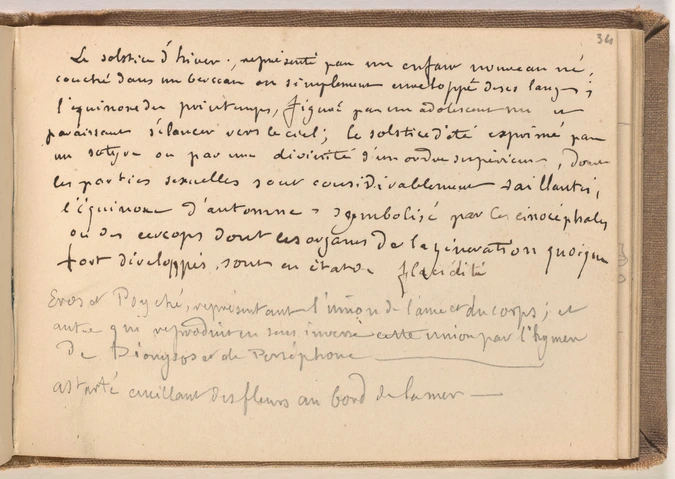 34
Le solstice d'hiver, représenté par un enfant nouveau né,
couché dans un berceau ou simplement enveloppé de ses langes;
l'équinoxe du printemps, figuré par un adolescent nu et
paraissant s'élancer vers le ciel; le solstice d'été exprimé par
un satyre ou par une divinité d'un ordre supérieur, dont
les parties sexuelles sont considérablement saillantes;
l'Équinoxe d'automne symbolisé par les cinocéphales
ou des cercops dont les organes de la génération quoique
fort développés, sont en état de flacidité
Eros et Psyché, représentant l'union de l'ame et du corps; et
autre qui reproduit en sens inverse cette union par l'hymen
de Dionysos et de Perséphone
astarté cueillant des fleurs au bord de la mer